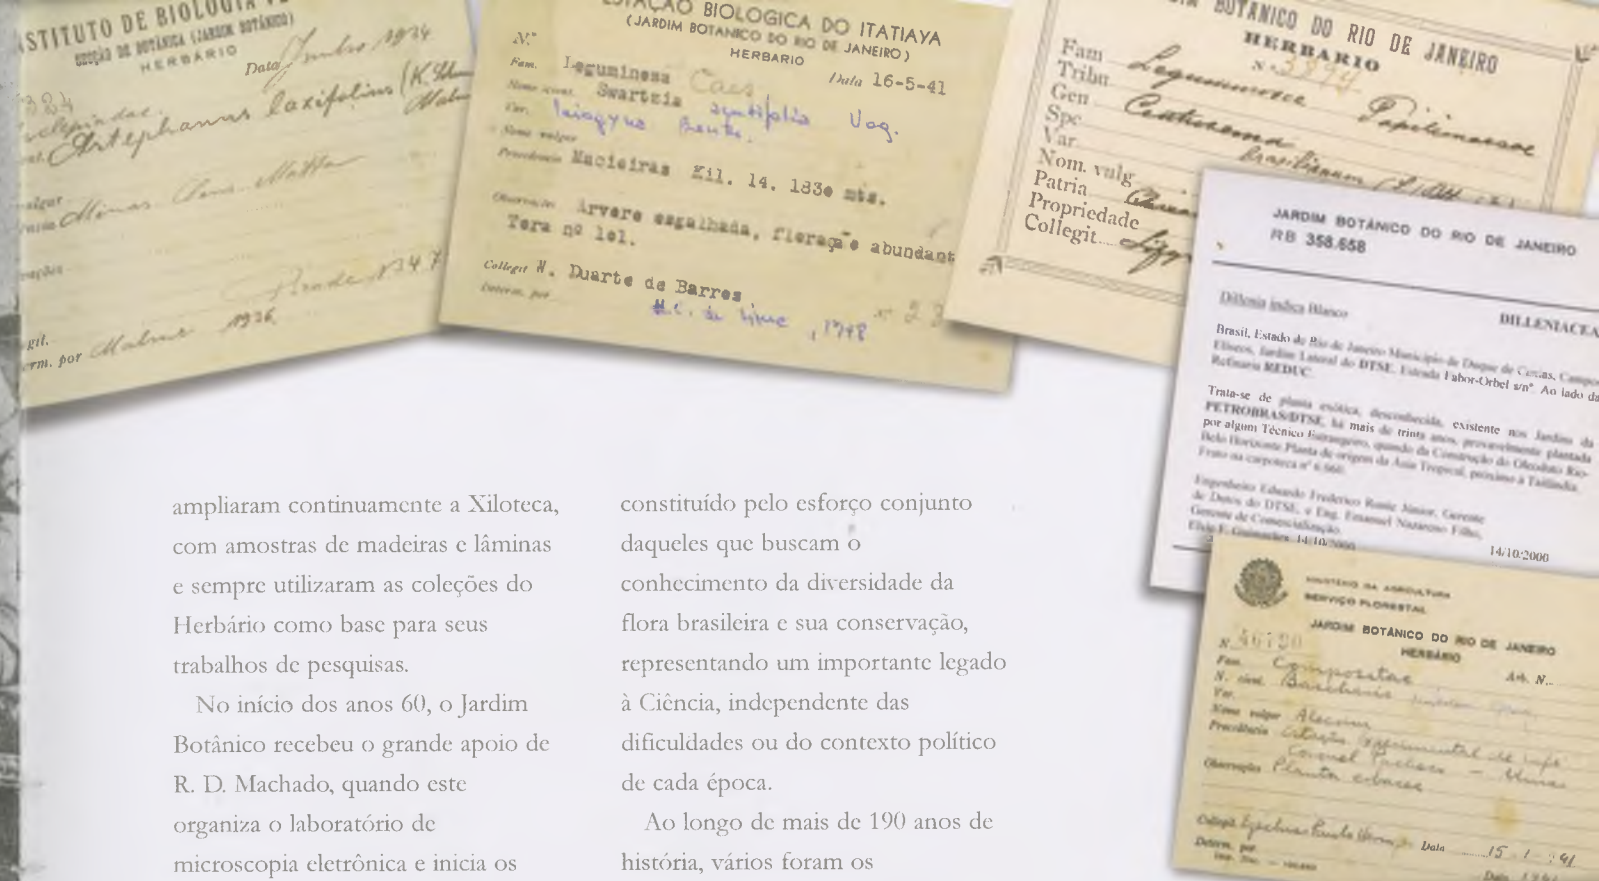 STITUTO DE BIOLOGIA VE
SECÇÃO DE BOTÂNICA (JARDIM BOTÂNICO)
HERBARIO
Data Junho 1934
Artephanus laxifolius (K.
Minas
erm. por Malme 1936
ESTAÇÃO BIOLOGICA DO ITATIAYA
(JARDIM BOTANICO DO RIO DE JANEIRO)
HERBARIO
N.º
Data 16-5-41
Fam. Leguminosa Caes
Nome scient. Swartzia Vog.
Var. Benth.
Nome vulgar
Procedencia Macieiras Kil. 14. 1830 mts.
Observações Arvore esgalhada, floração abundant
Tera nº 101.
Collegit W. Duarte de Barros
Determ. por H.C. de Lima, 1948
BOTANICO DO RIO DE JANEIRO
HERBARIO
N.º 3974
Fam Leguminosae Papilionaceae
Tribu
Gen Centrosema
Spc brasilianum
Var
Nom. vulg
Patria
Propriedade
Collegit
JARDIM BOTÂNICO DO RIO DE JANEIRO
RB 358.658
Dillenia indica Blanco
DILLENIACEA
Brasil, Estado do Rio de Janeiro Município de Duque de Caxias, Campos
Elíseos, Jardim Lateral do DTSE. Estrada Fabor-Orbel s/nº. Ao lado da
Refinaria REDUC.
Trata-se de planta exótica, desconhecida, existente nos Jardins da
PETROBRAS/DTSE, há mais de trinta anos, provavelmente plantada
por algum Técnico Estrangeiro, quando da Construção do Oleoduto Rio-
Belo Horizonte Planta de origem da Ásia Tropical, próximo à Tailândia.
Fruto na carpoteca nº 6.660.
Engenheiro Eduardo Frederico Júnior, Gerente
de Dutos do DTSE, e Eng. Emanuel Nazareno Filho,
Gerente de Comercialização.
Elsie F. Guimarães 14/10/2000
14/10/2000
MINISTÉRIO DA AGRICULTURA
SERVIÇO FLORESTAL
JARDIM BOTÂNICO DO RIO DE JANEIRO
HERBÁRIO
N. 46720
Fam. Compositae
N. cient. Baccharis
Var.
Nome vulgar Alecrim
Procedência Estação Experimental de Café
Coronel Pacheco - Minas
Observações Planta
Data 15-1-941
Determ. por
ampliaram continuamente a Xiloteca,
com amostras de madeiras e lâminas
e sempre utilizaram as coleções do
Herbário como base para seus
trabalhos de pesquisas.
No início dos anos 60, o Jardim
Botânico recebeu o grande apoio de
R. D. Machado, quando este
organiza o laboratório de
microscopia eletrônica e inicia os
constituído pelo esforço conjunto
daqueles que buscam o
conhecimento da diversidade da
flora brasileira e sua conservação,
representando um importante legado
à Ciência, independente das
dificuldades ou do contexto político
de cada época.
Ao longo de mais de 190 anos de
história, vários foram os